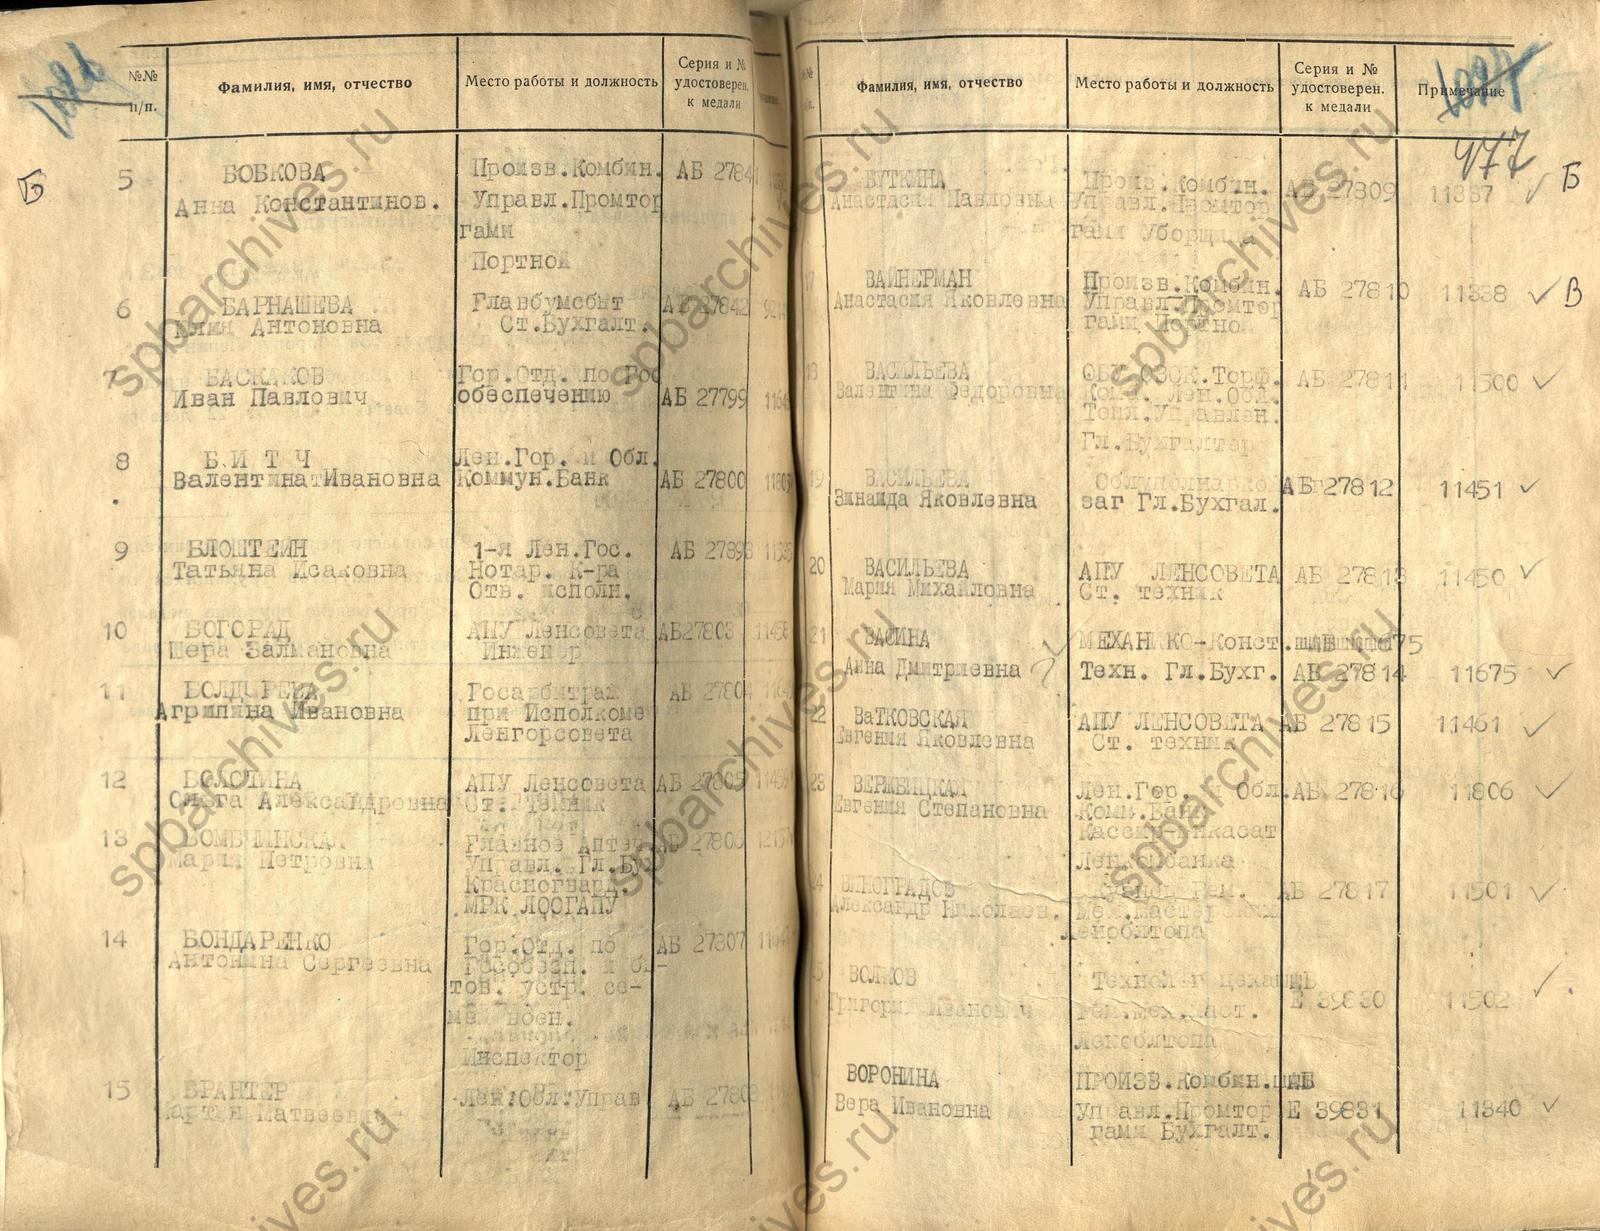 №№ п/п.
Фамилия, имя, отчество
Место работы и должность
Серия и № удостоверен. к медали
5
БОБКОВА
Анна Константинов.
Произв.Комбин.
Управл.Промтор
гами
Портной
АБ 2784
Б
6
БАРНАШЕВА
Антоновна
Главбумсбыт
Ст.Бухгалт.
АБ 27842
7
БАСКАКОВ
Иван Павлович
Гор.Отд. по Гос
обеспечению
АБ 27799
8
Б И Т Ч
Валентина Ивановна
Лен.Гор. и Обл.
Коммун.Банк
АБ 27800
9
БЛОШТЕЙН
Татьяна Исаковна
1-я Лен.Гос.
Нотар. К-ра
Отв. исполн.
АБ 27893
10
БОГОРАД
Шера Залмановна
АПУ Ленсовета
Инженер
АБ27803
11
БОЛДЫРЕВА
Агрипина Ивановна
Госарбитраж
при Исполкоме
Ленгорсовета
АБ 27804
12
БОЛОТИНА
Ольга Александровна
АПУ Ленсовета
Ст. Техник
АБ 27805
13
БОМБЧИНСКАЯ
Мария Петровна
Главное Аптеч
Управл. Гл.Бу
Красногвард.
МРК ЛООГАПУ
14
БОНДАРЕНКО
Антонина Сергеевна
Гор.Отд. по
Гособесп. и бы-
тов. устр. се-
мей воен.
Инспектор
АБ 27807
15
БРАНТЕР
Матвеевна
Лен.Обл.Управ
АБ 2780
Фамилия, имя, отчество
Место работы и должность
Серия и № удостоверен. к медали
Примечание
477
БУТКИНА
Анастасия Павловна
Произ.Комбин.
Управл.Промтор
гами Уборщица
АБ 27809
11337
Б
17
ВАЙНЕРМАН
Анастасия Яковлевна
Произв.Комбин.
Управл.Промтор
гами Портно
АБ 27810
11338
В
18
ВАСИЛЬЕВА
Валентина Федоровна
Лен.Обл.
Топл.Управлен.
Гл.Бухгалтер
АБ 27811
11500
19
ВАСИЛЬЕВА
Зинаида Яковлевна
заг Гл.Бухгал.
АБ 27812
11451
20
ВАСИЛЬЕВА
Мария Михайловна
АПУ ЛЕНСОВЕТА
Ст. техник
АБ 27813
11450
21
ВАСИНА
Анна Дмитриевна
МЕХАНИКО-Конст.
Техн. Гл.Бухг.
АБ 27814
11675
22
ВаТКОВСКАЯ
Евгения Яковлевна
АПУ ЛЕНСОВЕТА
Ст. техник
АБ 27815
11461
23
ВЕРЖБИЦКАЯ
Евгения Степановна
Лен.Гор. и Обл.
Комм.Банк
Кассир-Инкасат
Ленгорбанка
АБ 27816
11806
ВИНОГРАДОВ
Александр Николаев.
Кузнец Рем.
Мех.Мастерских
Леноблтопа
АБ 27817
11501
ВОЛКОВ
Григорий Иванович
Технолог цеха
Рем.мех.маст.
Леноблтопа
Е 39830
11502
ВОРОНИНА
Вера Ивановна
ПРОИЗВ.Комбин.
Управл.Промтор
гами Бухгалт.
Е 39831
11340
spbarchives.ru
spbarchives.ru
spbarchives.ru
spbarchives.ru
spbarchives.ru
spbarchives.ru